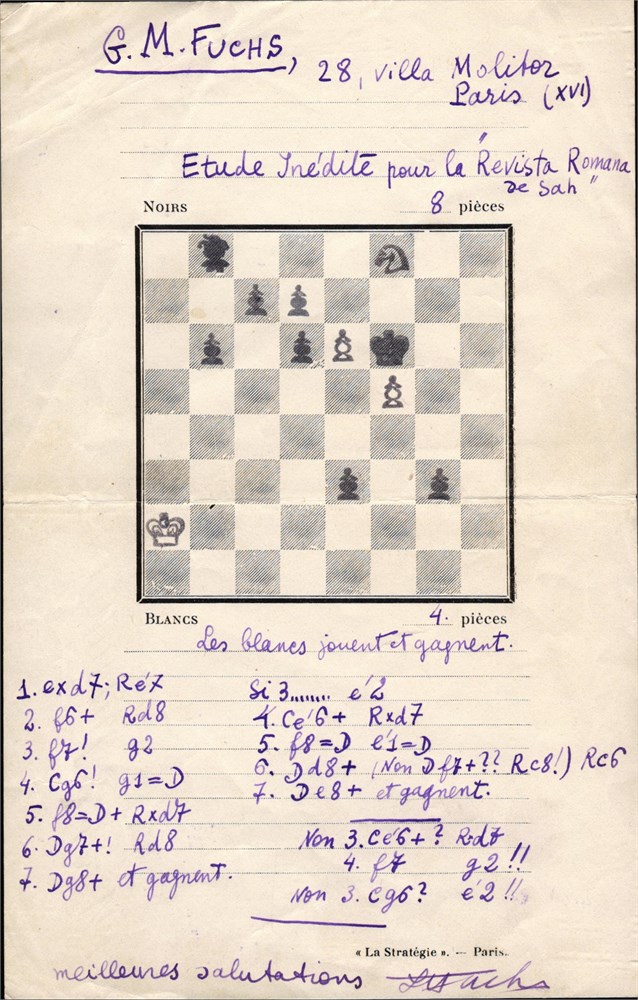 G. M. FUCHS,
28, villa Molitor
Paris (XVI)
Etude Inédite pour la "Revista Romana
de Sah"
NOIRS 8 pièces
BLANCS 4. pièces
Les blancs jouent et gagnent.
1. exd7; Ré7
2. f6+ Rd8
3. f7! g2
4. Cg6! g1=D
5. f8=D+ Rxd7
6. Dg7+! Rd8
7. Dg8+ et gagnent.
Si 3........ é2
4. Cé6+ Rxd7
5. f8=D é1=D
6. Dd8+ (Non Df7+?? Rc8!) Rc6
7. De8+ et gagnent.
Non 3. Cé6+? Rxd7
4. f7 g2!!
Non 3. Cg6? é2!!
« La Stratégie ». — Paris.
meilleures salutations